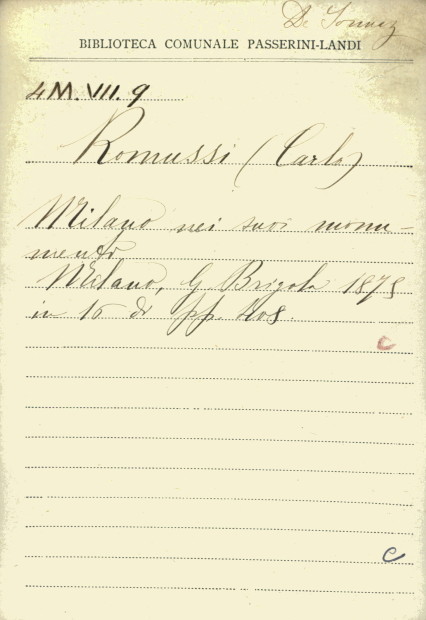 De
BIBLIOTECA COMUNALE PASSERINI-LANDI
4M.VII.9
Romussi (Carlo)
Milano nei suoi monu-
menti
Milano, G Brigola 1875
in 16 di pp. 408.
C
C